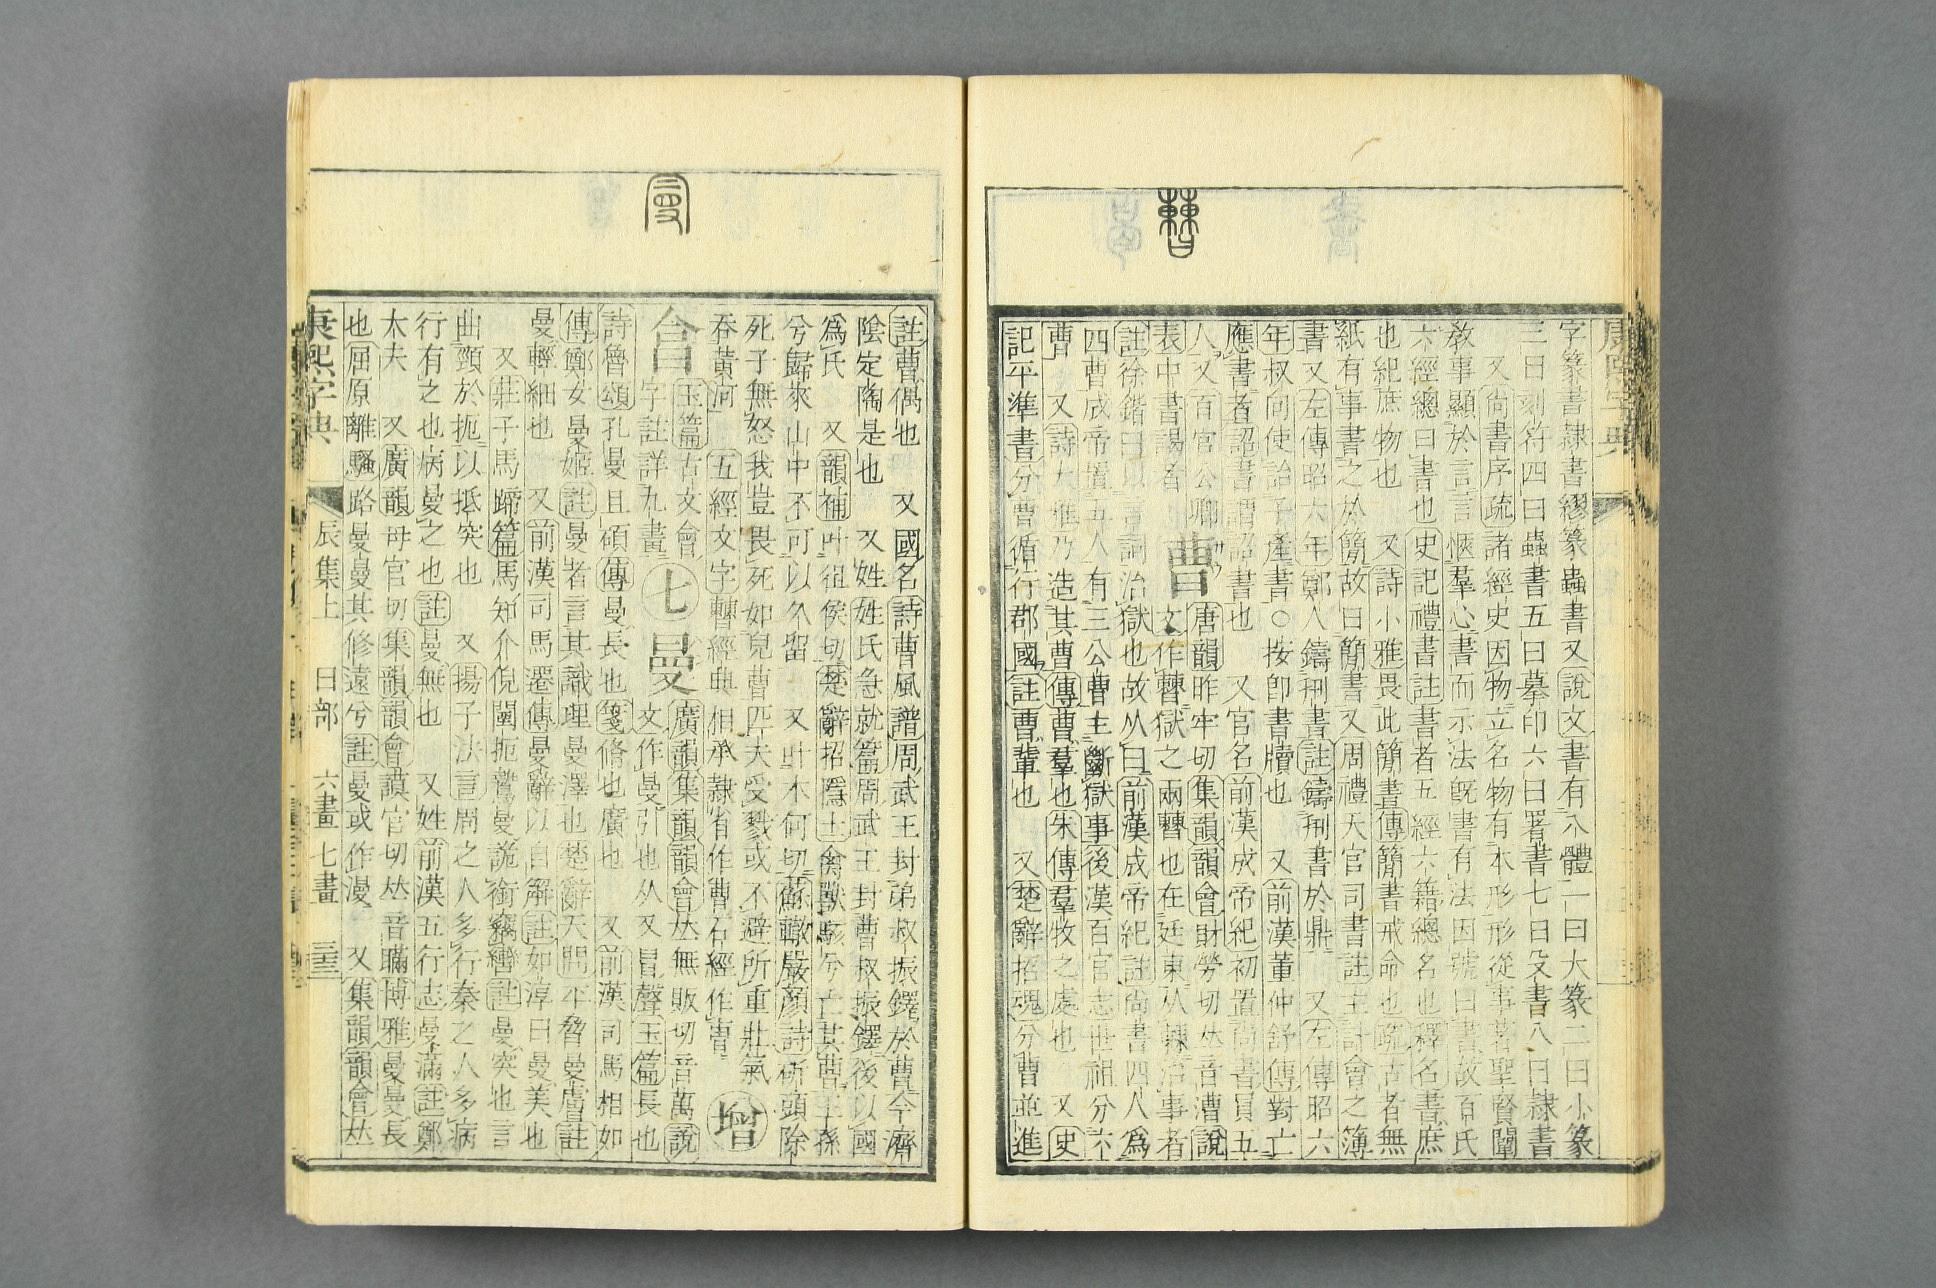 字篆書隸書繆篆蟲書又說文書有八體一曰大篆二曰小篆
三曰刻符四曰蟲書五曰摹印六曰署書七曰殳書八曰隸書
又尚書序疏諸經史因物立名物有本形形從事著聖賢闡
敎事顯於言言愜羣心書而示法旣書有法因號曰書故百氏
六經總曰書也史記禮書註書者五經六籍總名也釋名書庶
也紀庶物也 又詩小雅畏此簡書傳簡書戒命也疏古者無
紙有事書之於簡故曰簡書又周禮天官司書註主計會之簿
書又左傳昭六年鄭人鑄刑書註鑄刑書於鼎 又左傳昭六
年叔向使詒子產書○按卽書牘也 又前漢董仲舒傳對亡
應書者詔書謂詔書也 又官名前漢成帝紀初置尚書員五
人又百官公卿
表中書謁者
曹
唐韻昨牢切集韻韻會財勞切𠀤音漕說
文作𣍘獄之兩𣍘也在廷東从㯥治事者
註徐鍇曰以言詞治獄也故从曰前漢成帝紀註尚書四人爲
四曹成帝置五人有三公曹主斷獄事後漢百官志世祖分六
曹 又詩大雅乃造其曹傳曹羣也朱傳羣牧之處也 又史
記平準書分曹循行郡國註曹輩也 又楚辭招魂分曹並進
註曹偶也 又國名詩曹風譜周武王封弟叔振鐸於曹今濟
陰定陶是也 又姓姓氏急就篇周武王封曹叔振鐸後以國
爲氏 又韻補叶徂侯切楚辭招隱士禽獸駭兮亡其曹王孫
兮歸來山中不可以久留 又叶木何切蘇轍嚴顏詩斫頭除
死子無怒我豈畏死如兒曹匹夫受戮或不避所重壯氣
吞黃河 五經文字𣍘經典相承隸省作曹石經作曺
增
㑹
玉篇古文會
字註詳九畫
七
曼
廣韻集韻韻會𠀤無販切音萬說
文作曼引也从又冒聲玉篇長也
詩魯頌孔曼且碩傳曼長也箋脩也廣也 又前漢司馬相如
傳鄭女曼姬註曼者言其識理曼澤也楚辭天問平脅曼膚註
曼輕細也 又前漢司馬遷傳曼辭以自解註如淳曰曼美也
又莊子馬蹄篇馬知介倪闉扼鷙曼詭銜竊轡註曼突也言
曲頸於扼以抵突也 又揚子法言周之人多行秦之人多病
行有之也病曼之也註曼無也 又姓前漢五行志曼滿註鄭
大夫 又廣韻母官切集韻韻會謨官切𠀤音瞞博雅曼曼長
也屈原離騷路曼曼其修遠兮註曼或作漫 又集韻韻會𠀤
康熙字典 辰集上 曰部 六畫 七畫 三三